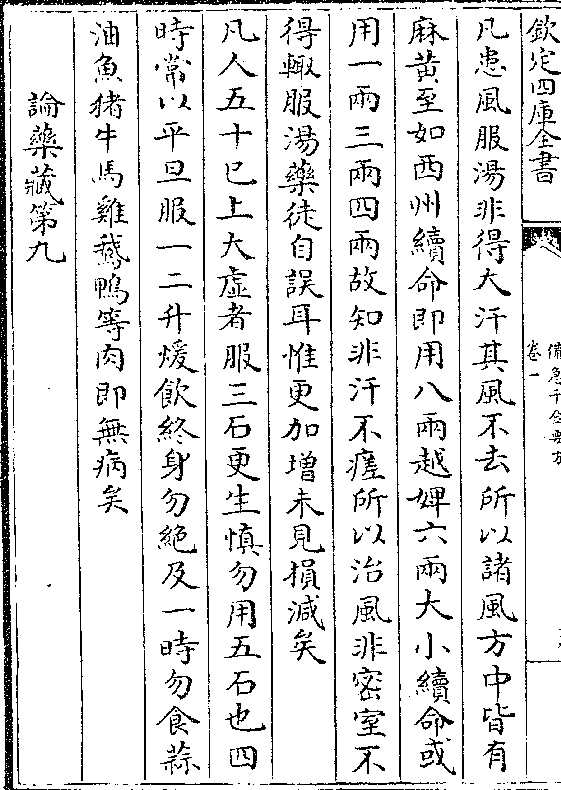 欽定四庫全書
備急千金要方
卷一
凡患風服湯非得大汗其風不去所以諸風方中皆有
麻黄至如西州續命即用八兩越婢六兩大小續命或
用一兩三兩四兩故知非汗不瘥所以治風非密室不
得輙服湯藥徒自誤耳惟更加增未見損減矣
凡人五十已上大虛者服三石更生慎勿用五石也四
時常以平旦服一二升煖飲終身勿絕及一時勿食蒜
油魚猪牛馬雞鵝鴨等肉即無病矣
論藥藏第九